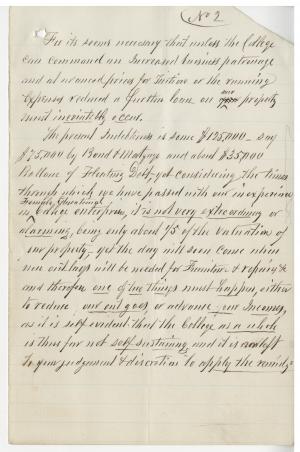 No 2
For it seems necessary that unless the College
can command an increased business patronage
and advanced prices for Tuition or the running
Expenses reduced a further loan on our property
must inevitably occur.
The present Indebtness is some $125,000 – say
$75,000 by Bond & Mortgage and about $35,000
Ballance of Floating Debt – yet considering the times
through which we have passed with our inexperience
in Female Educational
College enterprise, it is not very extraordinary or
alarming, being only about 1/5 of the valuation of
our property – yet the day will soon come when
new outlays will be needed for Furniture & repairs &c
and therefore one of two things must happen, either
to reduce our out goes, or advance our Incomes,
as it is self evident that the College as a whole
is thus far not self sustaining, and it is now left
to your judgement & discretion to apply the remidy